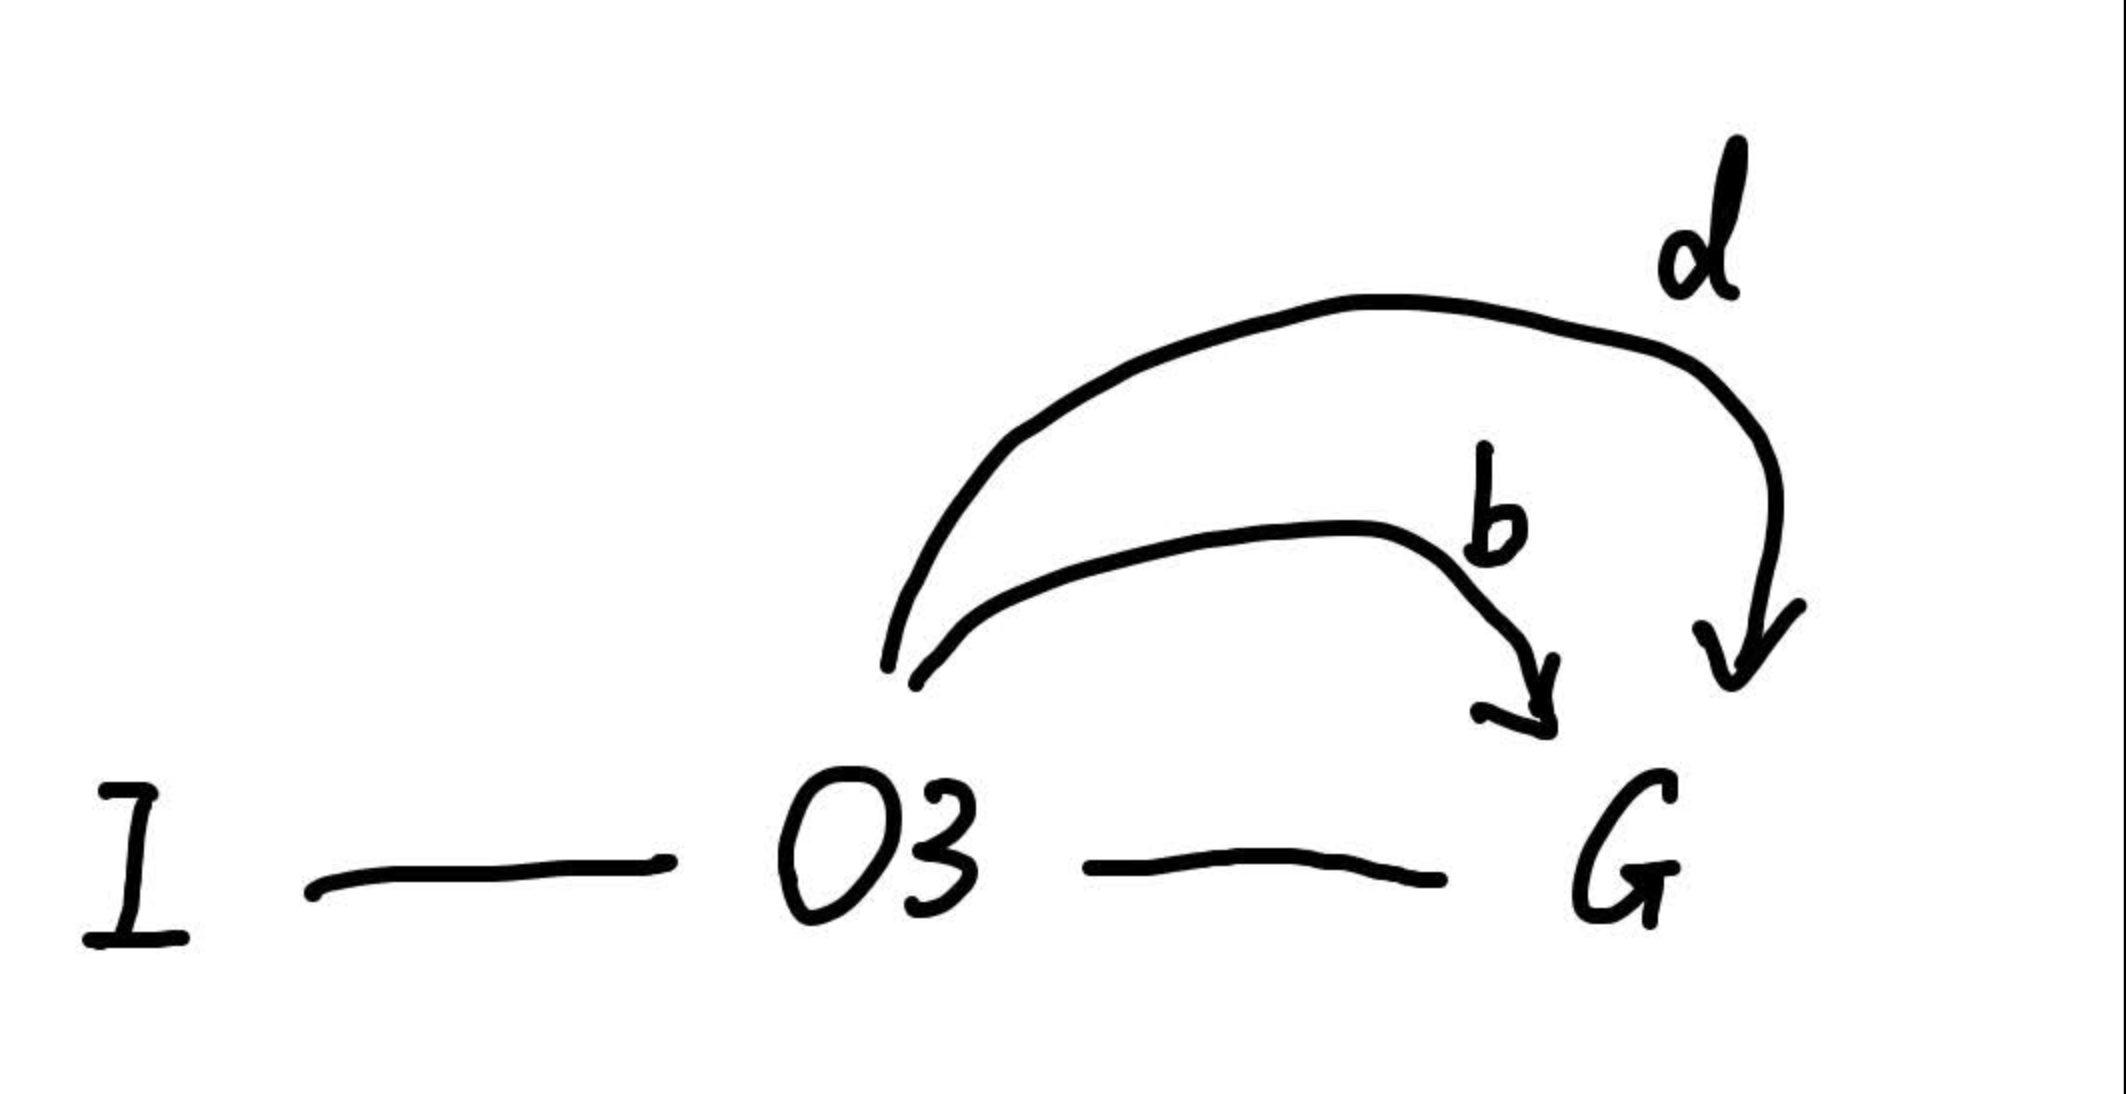 d
b
I — O3 — G